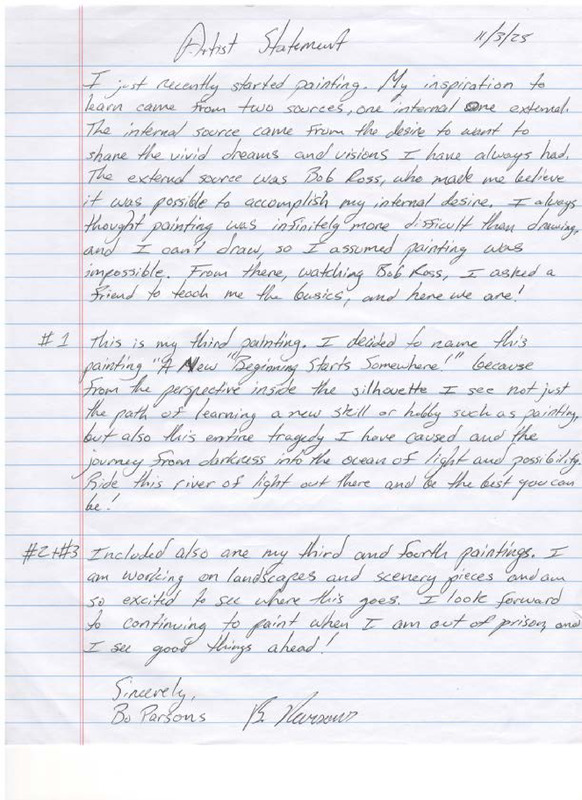 Artist Statement
11/3/25
I just recently started painting. My inspiration to
learn came from two sources, one internal one external.
The internal source came from the desire to want to
share the vivid dreams and visions I have always had.
The external source was Bob Ross, who made me believe
it was possible to accomplish my internal desire. I always
thought painting was infinitely more difficult than drawing,
and I can't draw, so I assumed painting was
impossible. From there, watching Bob Ross, I asked a
friend to teach me the basics, and here we are!
#1 This is my third painting. I decided to name this
painting "A New "Beginning Starts Somewhere!" because
from the perspective inside the silhouette I see not just
the path of learning a new skill or hobby such as painting,
but also this entire tragedy I have caused and the
journey from darkness into the ocean of light and possibility.
Ride this river of light out there and be the best you can
be!
#2+#3 Included also are my third and fourth paintings. I
am working on landscapes and scenery pieces and am
so excited to see where this goes. I look forward
to continuing to paint when I am out of prison, and
I see good things ahead!
Sincerely,
Bo Parsons B. Parsons